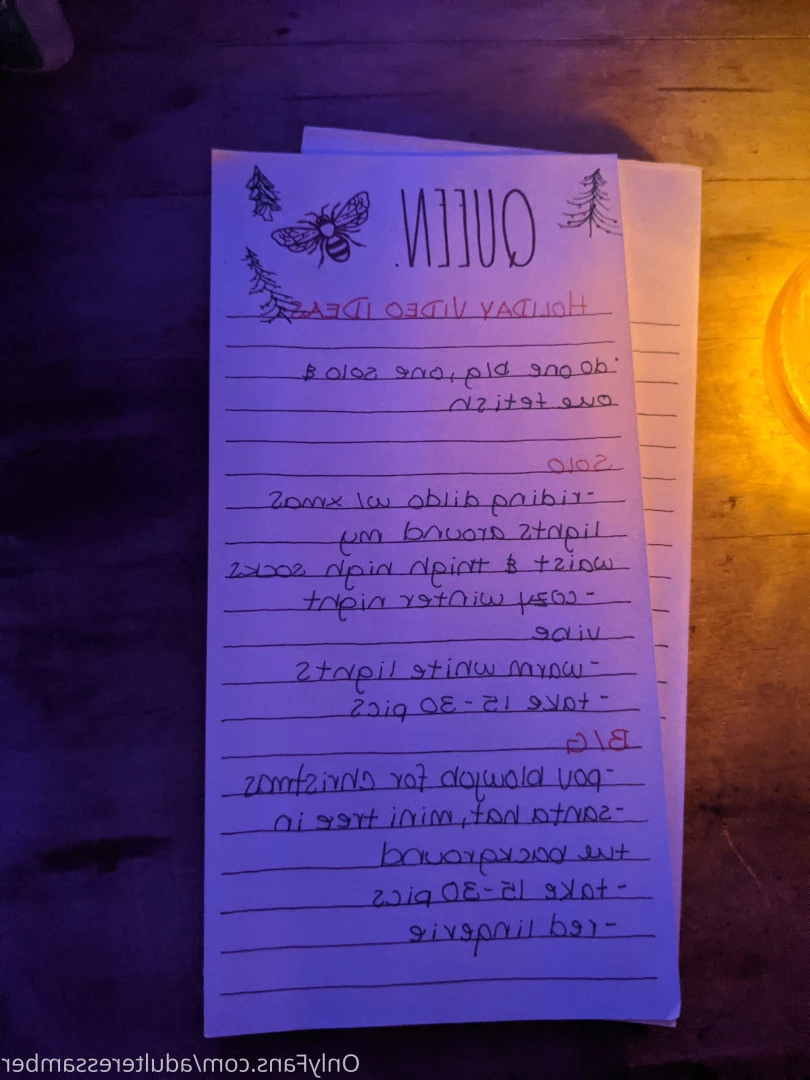 QUEEN.
HOLIDAY VIDEO IDEAS
·do one b|g, one solo &
one fetish
SOLO
-riding dildo w/ xmas
lights around my
waist & thigh high socks
-cozy winter night
vibe
-warm white lights
-take 15-30 pics
B/G
-pov blowjob for christmas
-santa hat, mini tree in
the background
-take 15-30 pics
-red lingerie
OnlyFans.com/adulteressamber